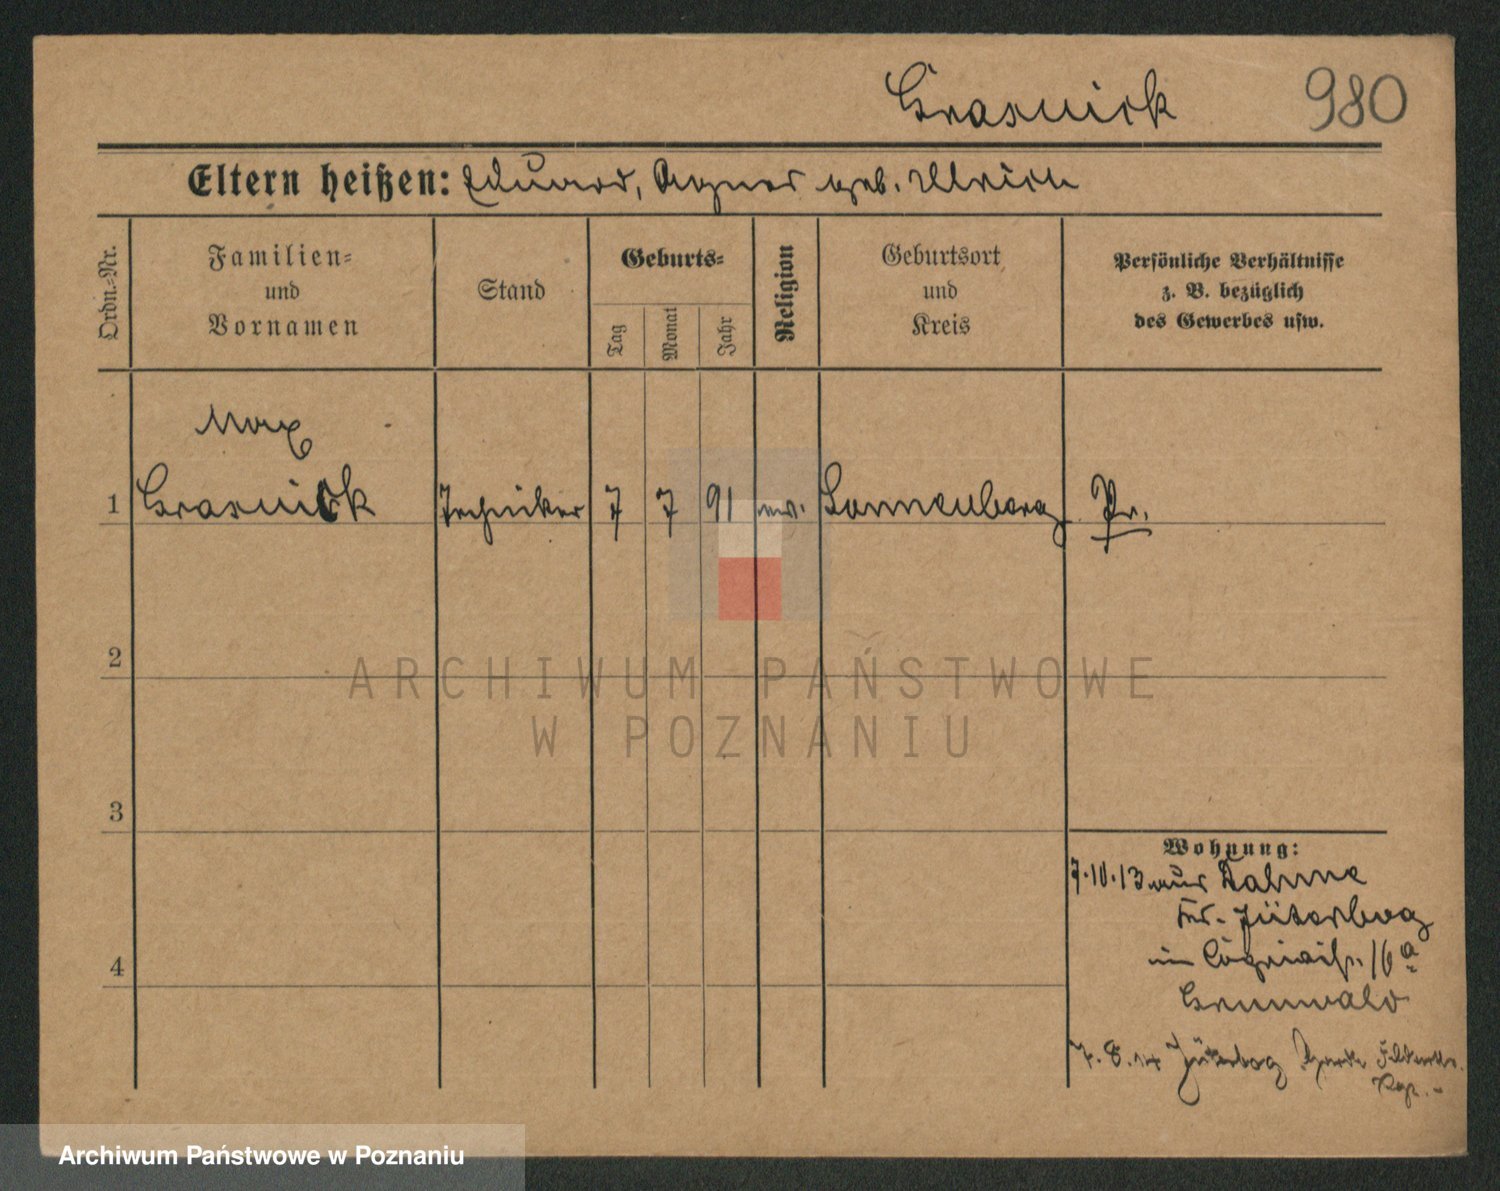 Grasnick 980
Eltern heißen: Eduard, Agnes geb. Ullrich
Ordn.-Nr.
Familien-
und
Vornamen
Stand
Geburts-
Tag
Monat
Jahr
Religion
Geburtsort
und
Kreis
Persönliche Verhältnisse
z. B. bezüglich
des Gewerbes usw.
Max
1 Grasnick Techniker 7 7 91 ev. Sonnenberg Pr.
2
3
4
Wohnung:
7.10.13 aus Dahme
Kr. Jüterbog
16a
Grunwald
7.8.14 Jüterbog Garde
ARCHIWUM PAŃSTWOWE
W POZNANIU
Archiwum Państwowe w Poznaniu